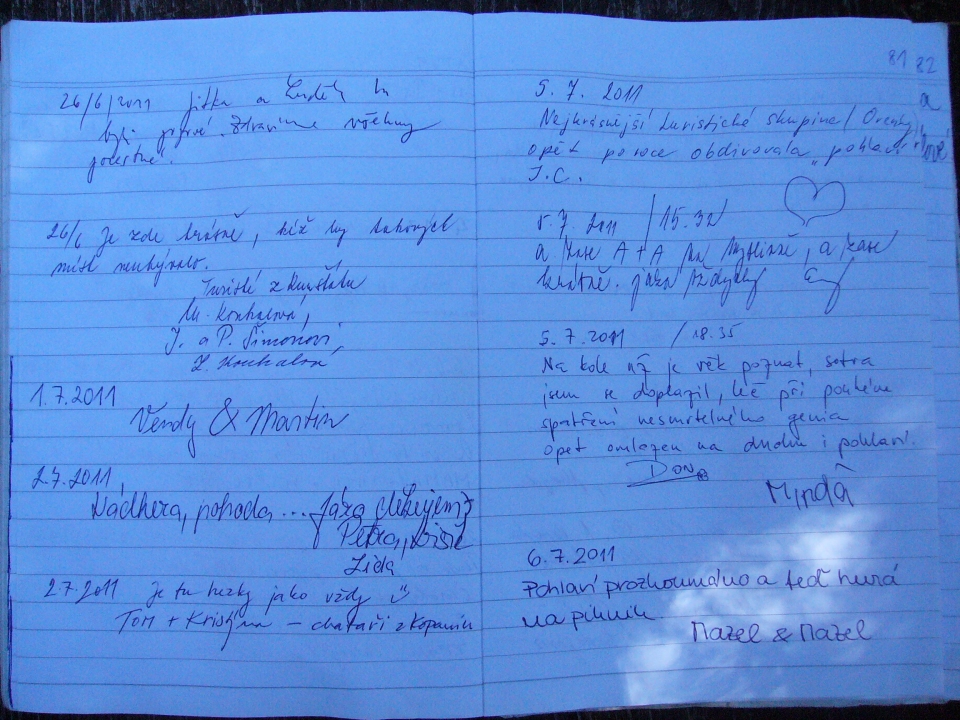 26/6/2011 Jitka a Luděk
byli poprvé. Zdravíme všechny
26/6 Je zde krásně, kéž by takových
míst neubývalo.
Turisté z Kunštátu
M. Konkalová,
J. a P. Šimonovi,
1.7.2011
Vendy & Martin
2.7.2011,
Nádhera, pohoda... Jára děkujem
Petra,
Lída
2.7.2011 Je tu hezky jako vždy
Tom + Kristýna - chataři z Kopanin
81 82
5. 7. 2011
Nejkrásnější turistické skupine
opět po roce obdivovala "pohlaví"
J.C.
5.7. 2011 / 15.32
a zase A + A na výšlapě, a zase
krátně. Jára vždycky
5.7.2011 / 18.35
Na kole už je věk poznat, sotva
jsem se doplazil, leč při pouhém
spatření nesmrtelného genia
opět omlazen na duchu i pohlaví.
Don
Minda
6.7.2011
Pohlaví prozkoumáno a teď hurá
na piknik
Mazel & Mazel